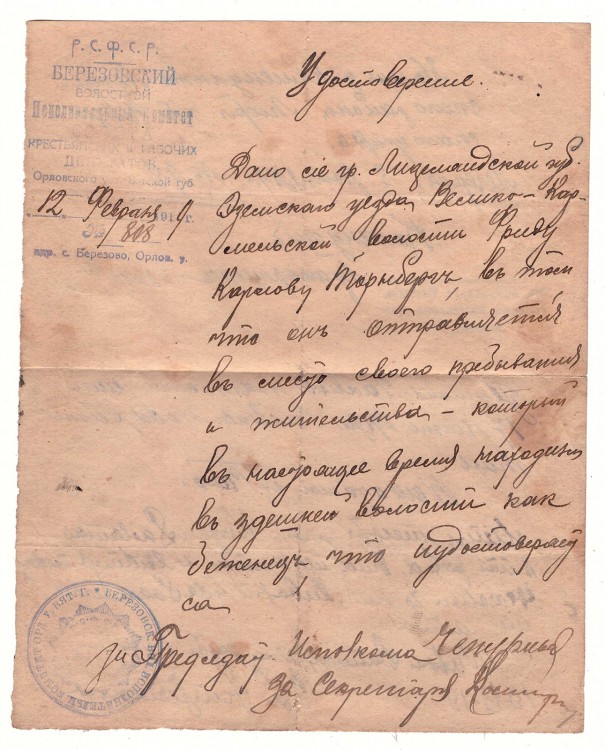 Р. С. Ф. С. Р.
БЕРЕЗОВСКИЙ
ВОЛОСТНОЙ
Исполнительный Комитет
КРЕСТЬЯНСКИХ и РАБОЧИХ
ДЕПУТАТОВ
Орловского у. Вятской губ.
12 Февраля 1919 г.
№ 808
адр. с. Березово, Орлов. у.
Удостоверение.
Дано сіе гр. Лифляндской губ.
уезда Велико-Кар-
мельской волости Фриду
Карлову в том
что онъ отправляется
в место своего пребывания
и жительства – который
в настоящее время находится
в здешней волости как
беженец что и удостоверяет
ся
За Председат. Исполкома
За Секретаря